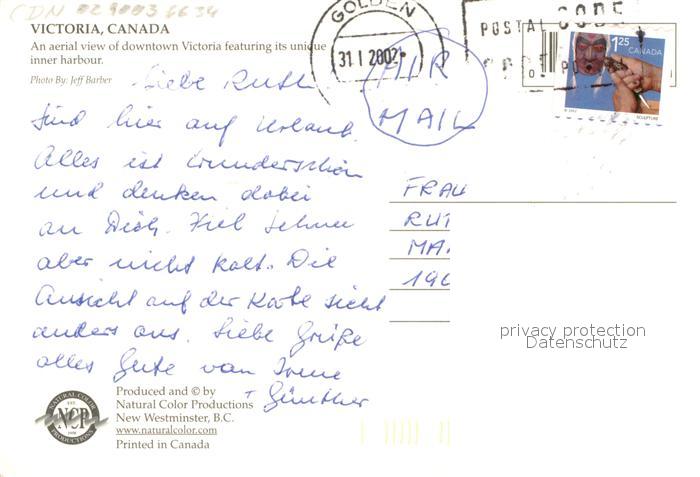 CDN 0290036634
VICTORIA, CANADA
An aerial view of downtown Victoria featuring its unique
inner harbour.
Photo By: Jeff Barber
GOLDEN
31 I 2002
POSTAL CODE
1.25
CANADA
SCULPTURE
AIR
MAIL
Liebe Ruth
Sind hier auf Urlaub.
Alles ist wunderschön
und denken dabei
an Dich. Viel Schnee
aber nicht kalt. Die
Ansicht auf der Karte sieht
anders aus. Liebe Grüße
alles Gute von Irene
+ Günther
FRAU
RUT
MA.
190
privacy protection
Datenschutz
NATURAL COLOR
NCP
PRODUCTIONS
Produced and © by
Natural Color Productions
New Westminster, B.C.
www.naturalcolor.com
Printed in Canada